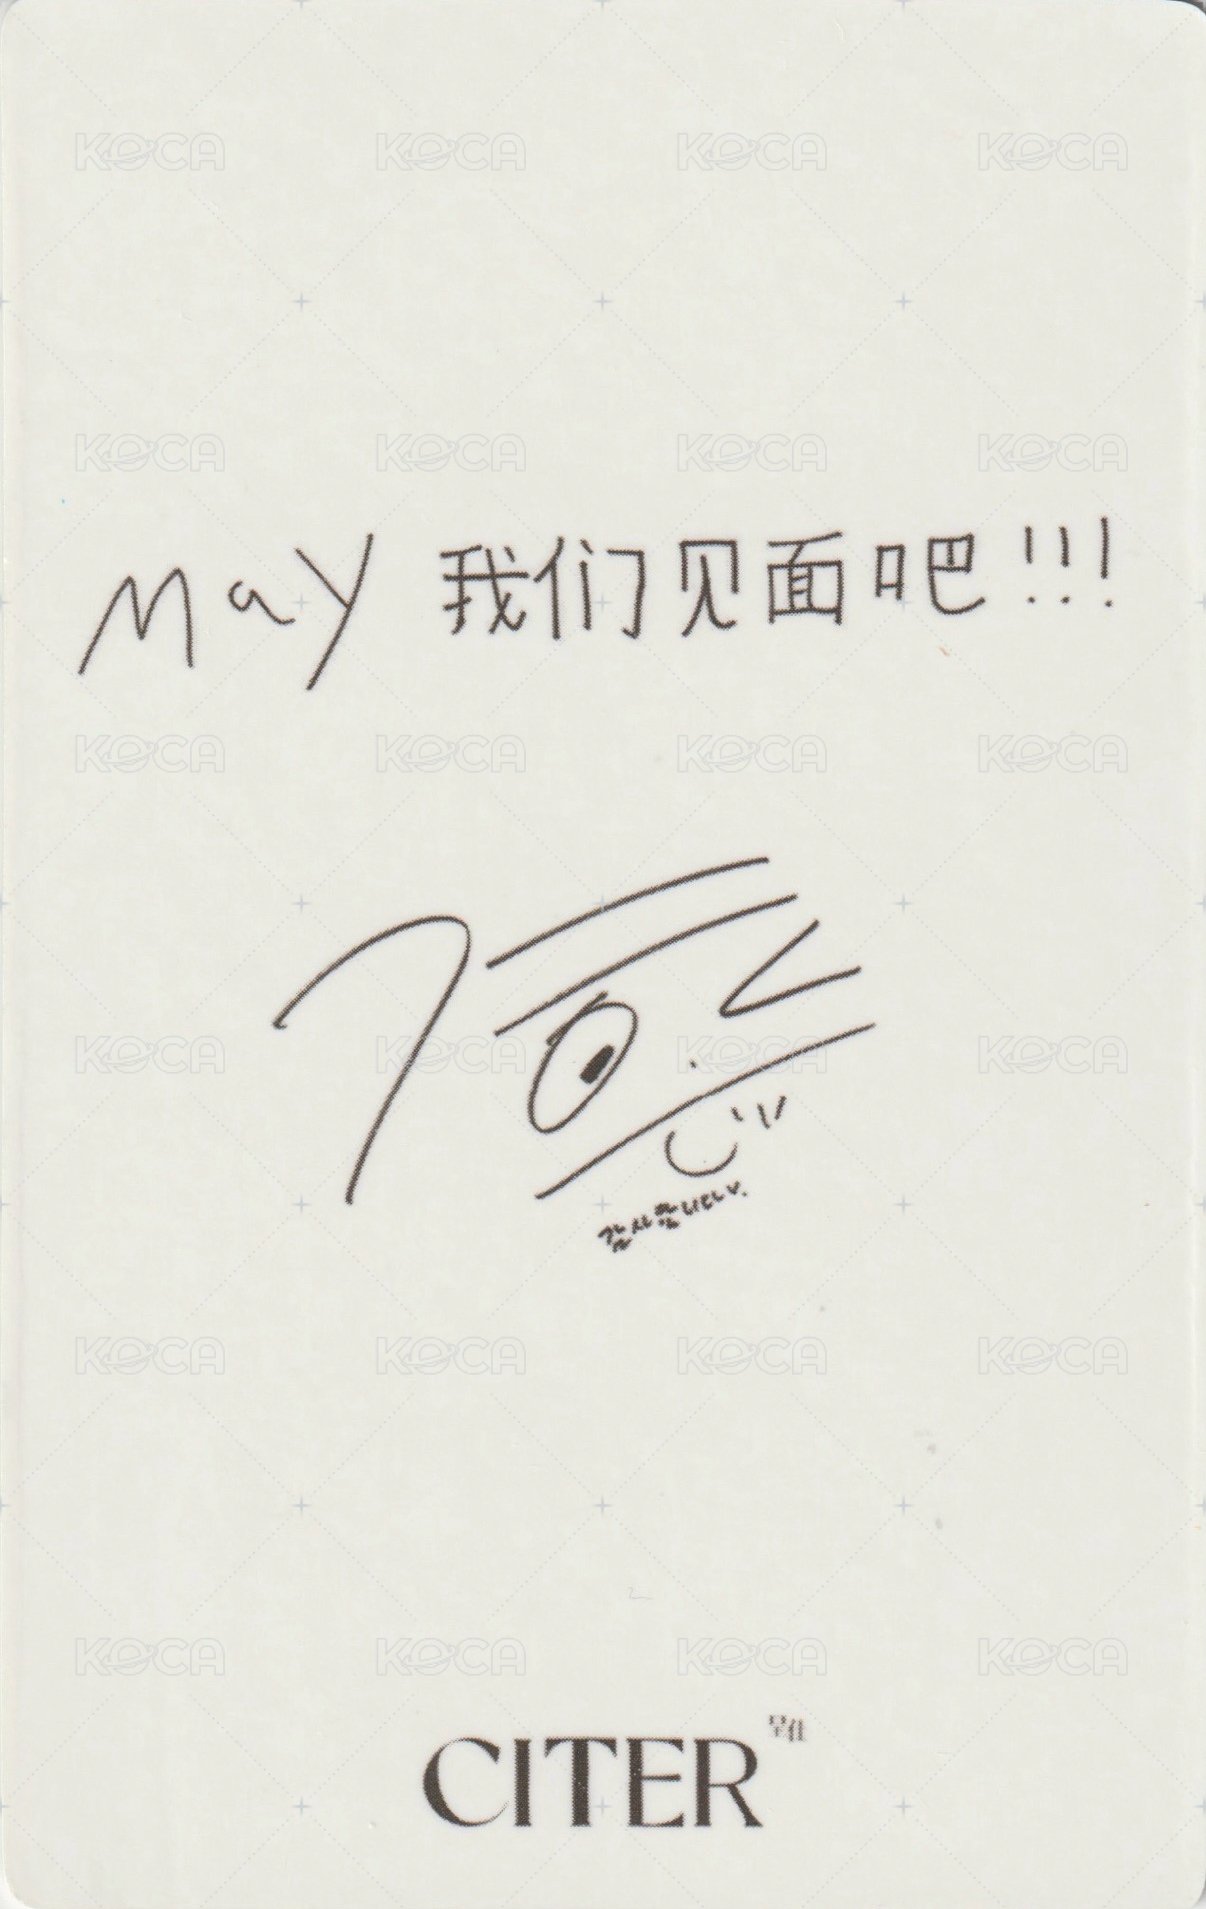 KOCA KOCA KOCA KOCA
KOCA KOCA KOCA KOCA
May 我们见面吧!!!
KOCA KOCA KOCA KOCA
KOCA KOCA KOCA KOCA
감사합니다
KOCA KOCA KOCA KOCA
KOCA KOCA KOCA KOCA
CITER